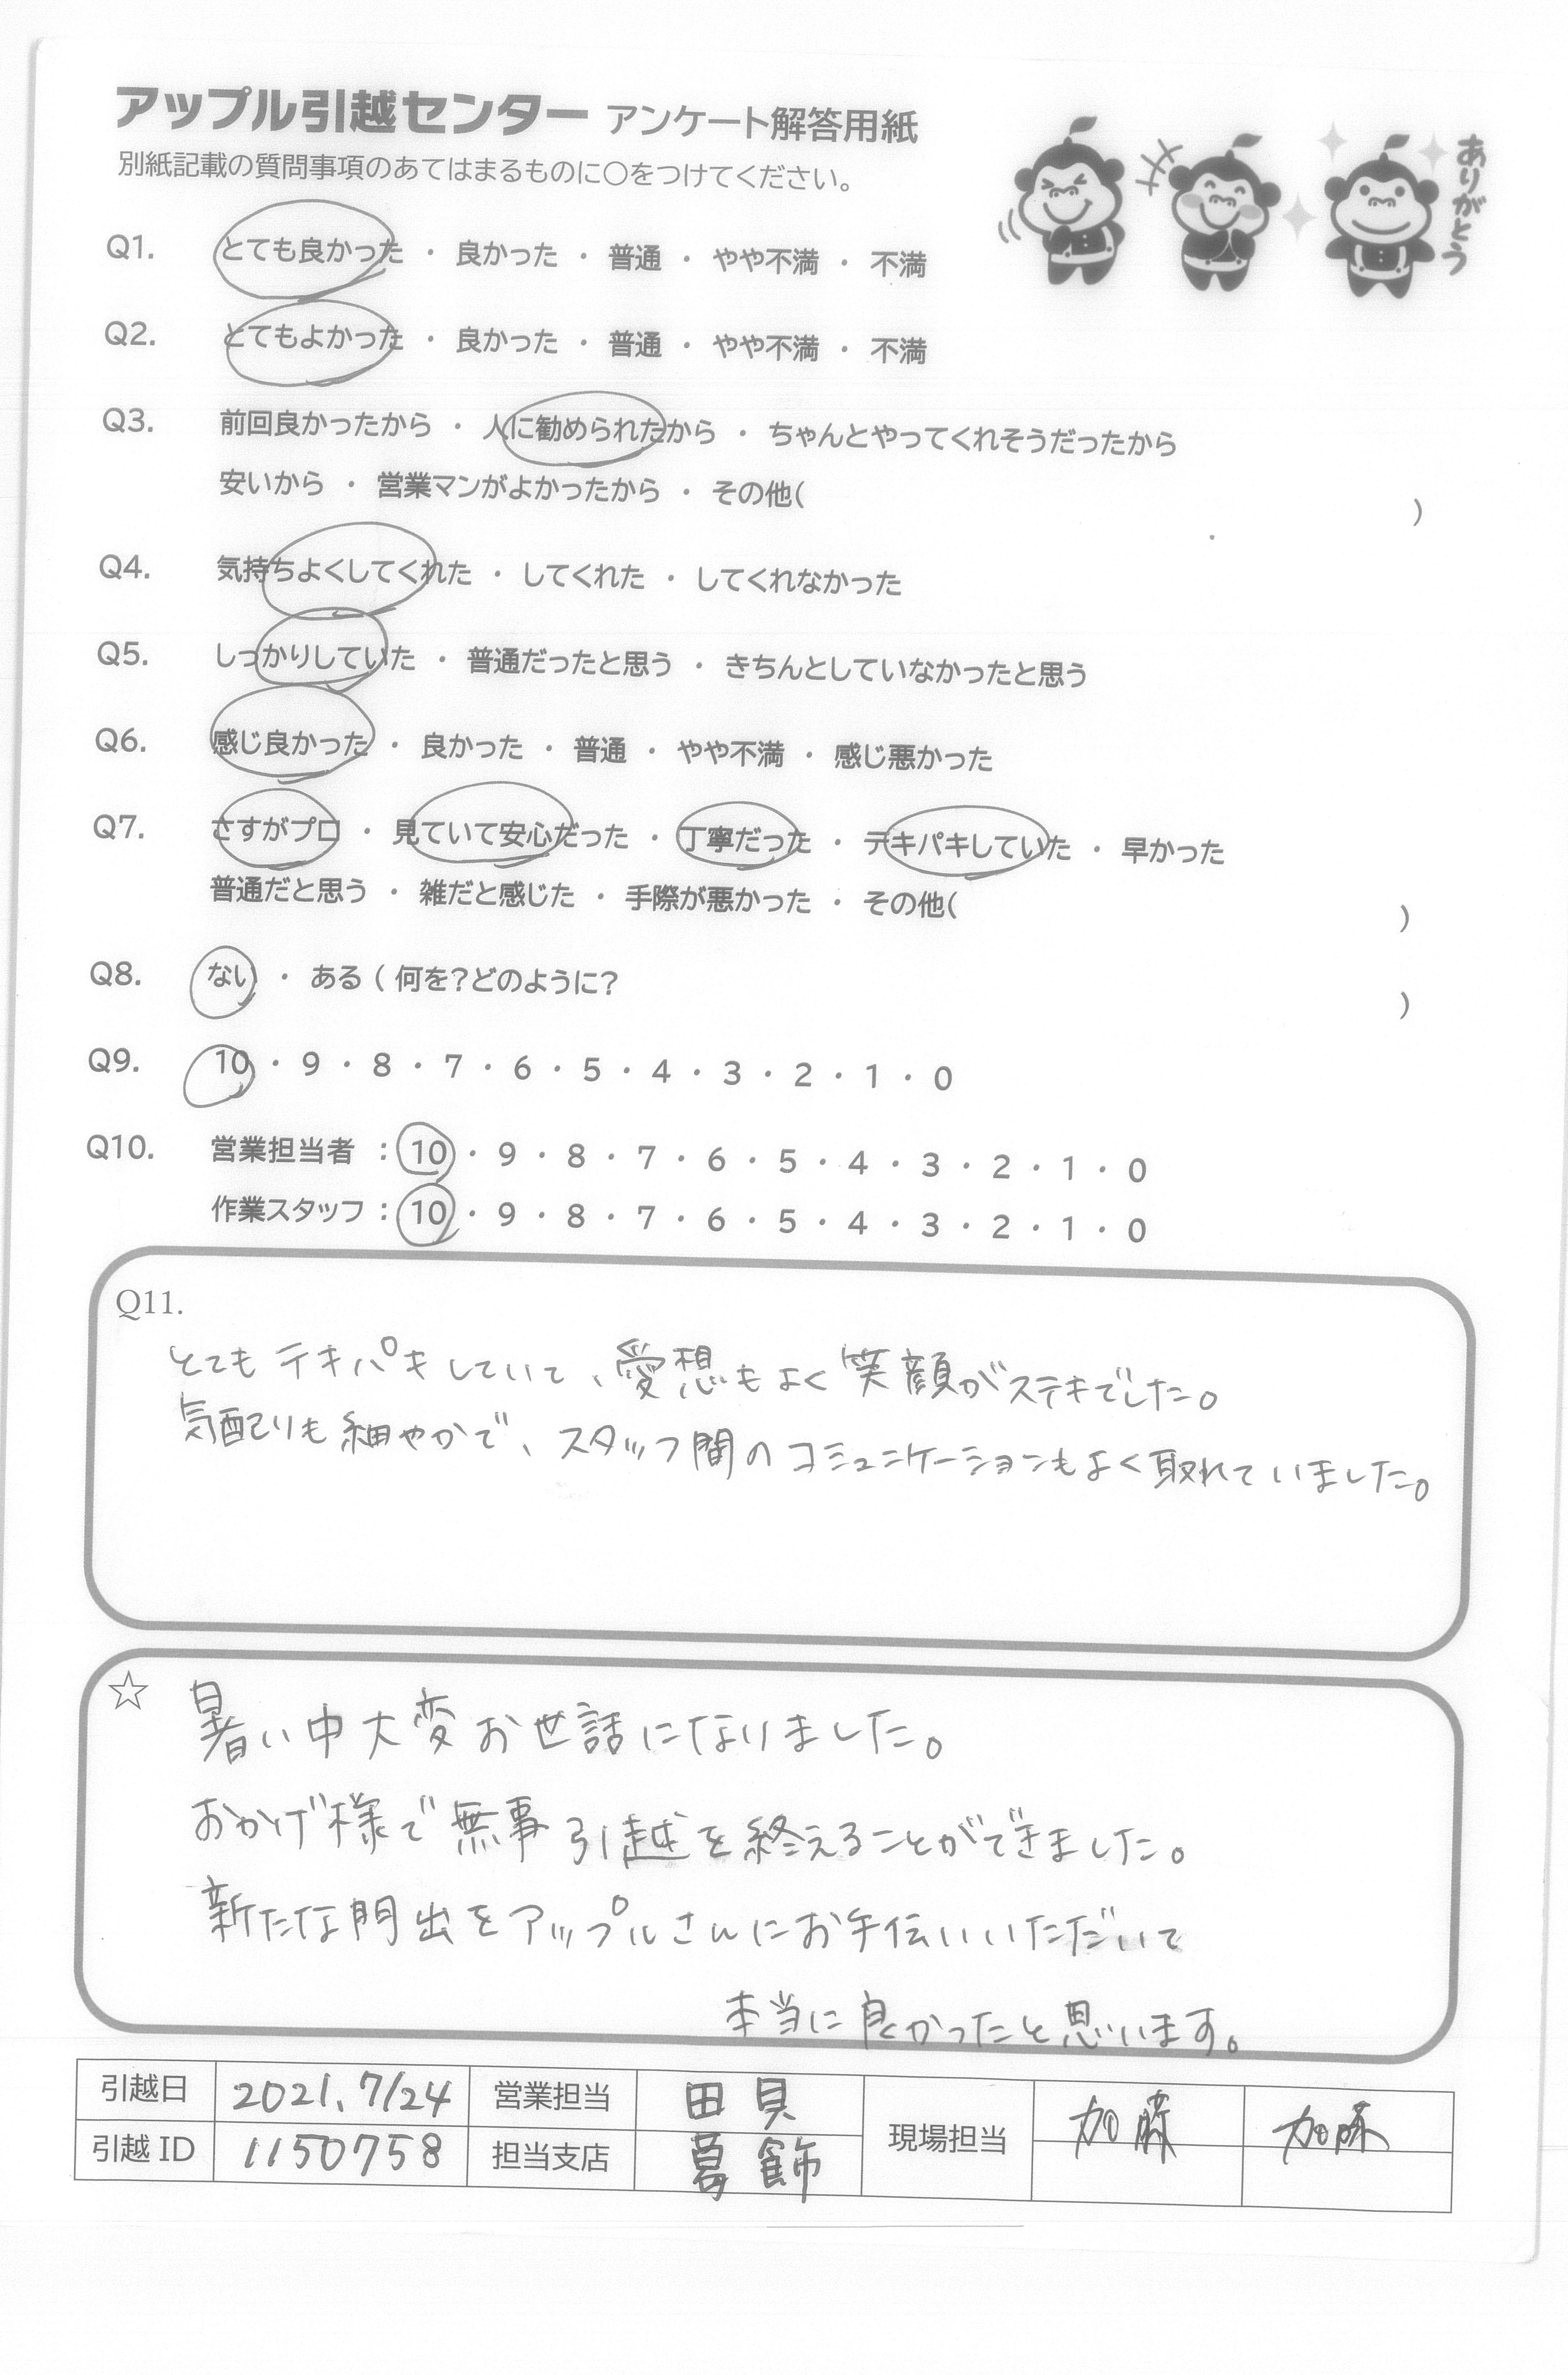 アップル引越センター アンケート解答用紙
別紙記載の質問事項のあてはまるものに○をつけてください。
ありがとう
Q1. とても良かった ・ 良かった ・ 普通 ・ やや不満 ・ 不満
Q2. とてもよかった ・ 良かった ・ 普通 ・ やや不満 ・ 不満
Q3. 前回良かったから ・ 人に勧められたから ・ ちゃんとやってくれそうだったから
安いから ・ 営業マンがよかったから ・ その他( )
Q4. 気持ちよくしてくれた ・ してくれた ・ してくれなかった
Q5. しっかりしていた ・ 普通だったと思う ・ きちんとしていなかったと思う
Q6. 感じ良かった ・ 良かった ・ 普通 ・ やや不満 ・ 感じ悪かった
Q7. さすがプロ ・ 見ていて安心だった ・ 丁寧だった ・ テキパキしていた ・ 早かった
普通だと思う ・ 雑だと感じた ・ 手際が悪かった ・ その他( )
Q8. ない ・ ある ( 何を?どのように? )
Q9. 10 ・ 9 ・ 8 ・ 7 ・ 6 ・ 5 ・ 4 ・ 3 ・ 2 ・ 1 ・ 0
Q10. 営業担当者 : 10 ・ 9 ・ 8 ・ 7 ・ 6 ・ 5 ・ 4 ・ 3 ・ 2 ・ 1 ・ 0
作業スタッフ : 10 ・ 9 ・ 8 ・ 7 ・ 6 ・ 5 ・ 4 ・ 3 ・ 2 ・ 1 ・ 0
Q11.
とてもテキパキしていて、愛想もよく笑顔がステキでした。
気配りも細やかで、スタッフ間のコミュニケーションもよく取れていました。
☆ 暑い中大変お世話になりました。
おかげ様で無事引越を終えることができました。
新たな門出をアップルさんにお手伝いいただいて
本当に良かったと思います。
引越日 2021.7/24 営業担当 田貝 現場担当 加藤 加藤
引越ID 1150758 担当支店 葛飾